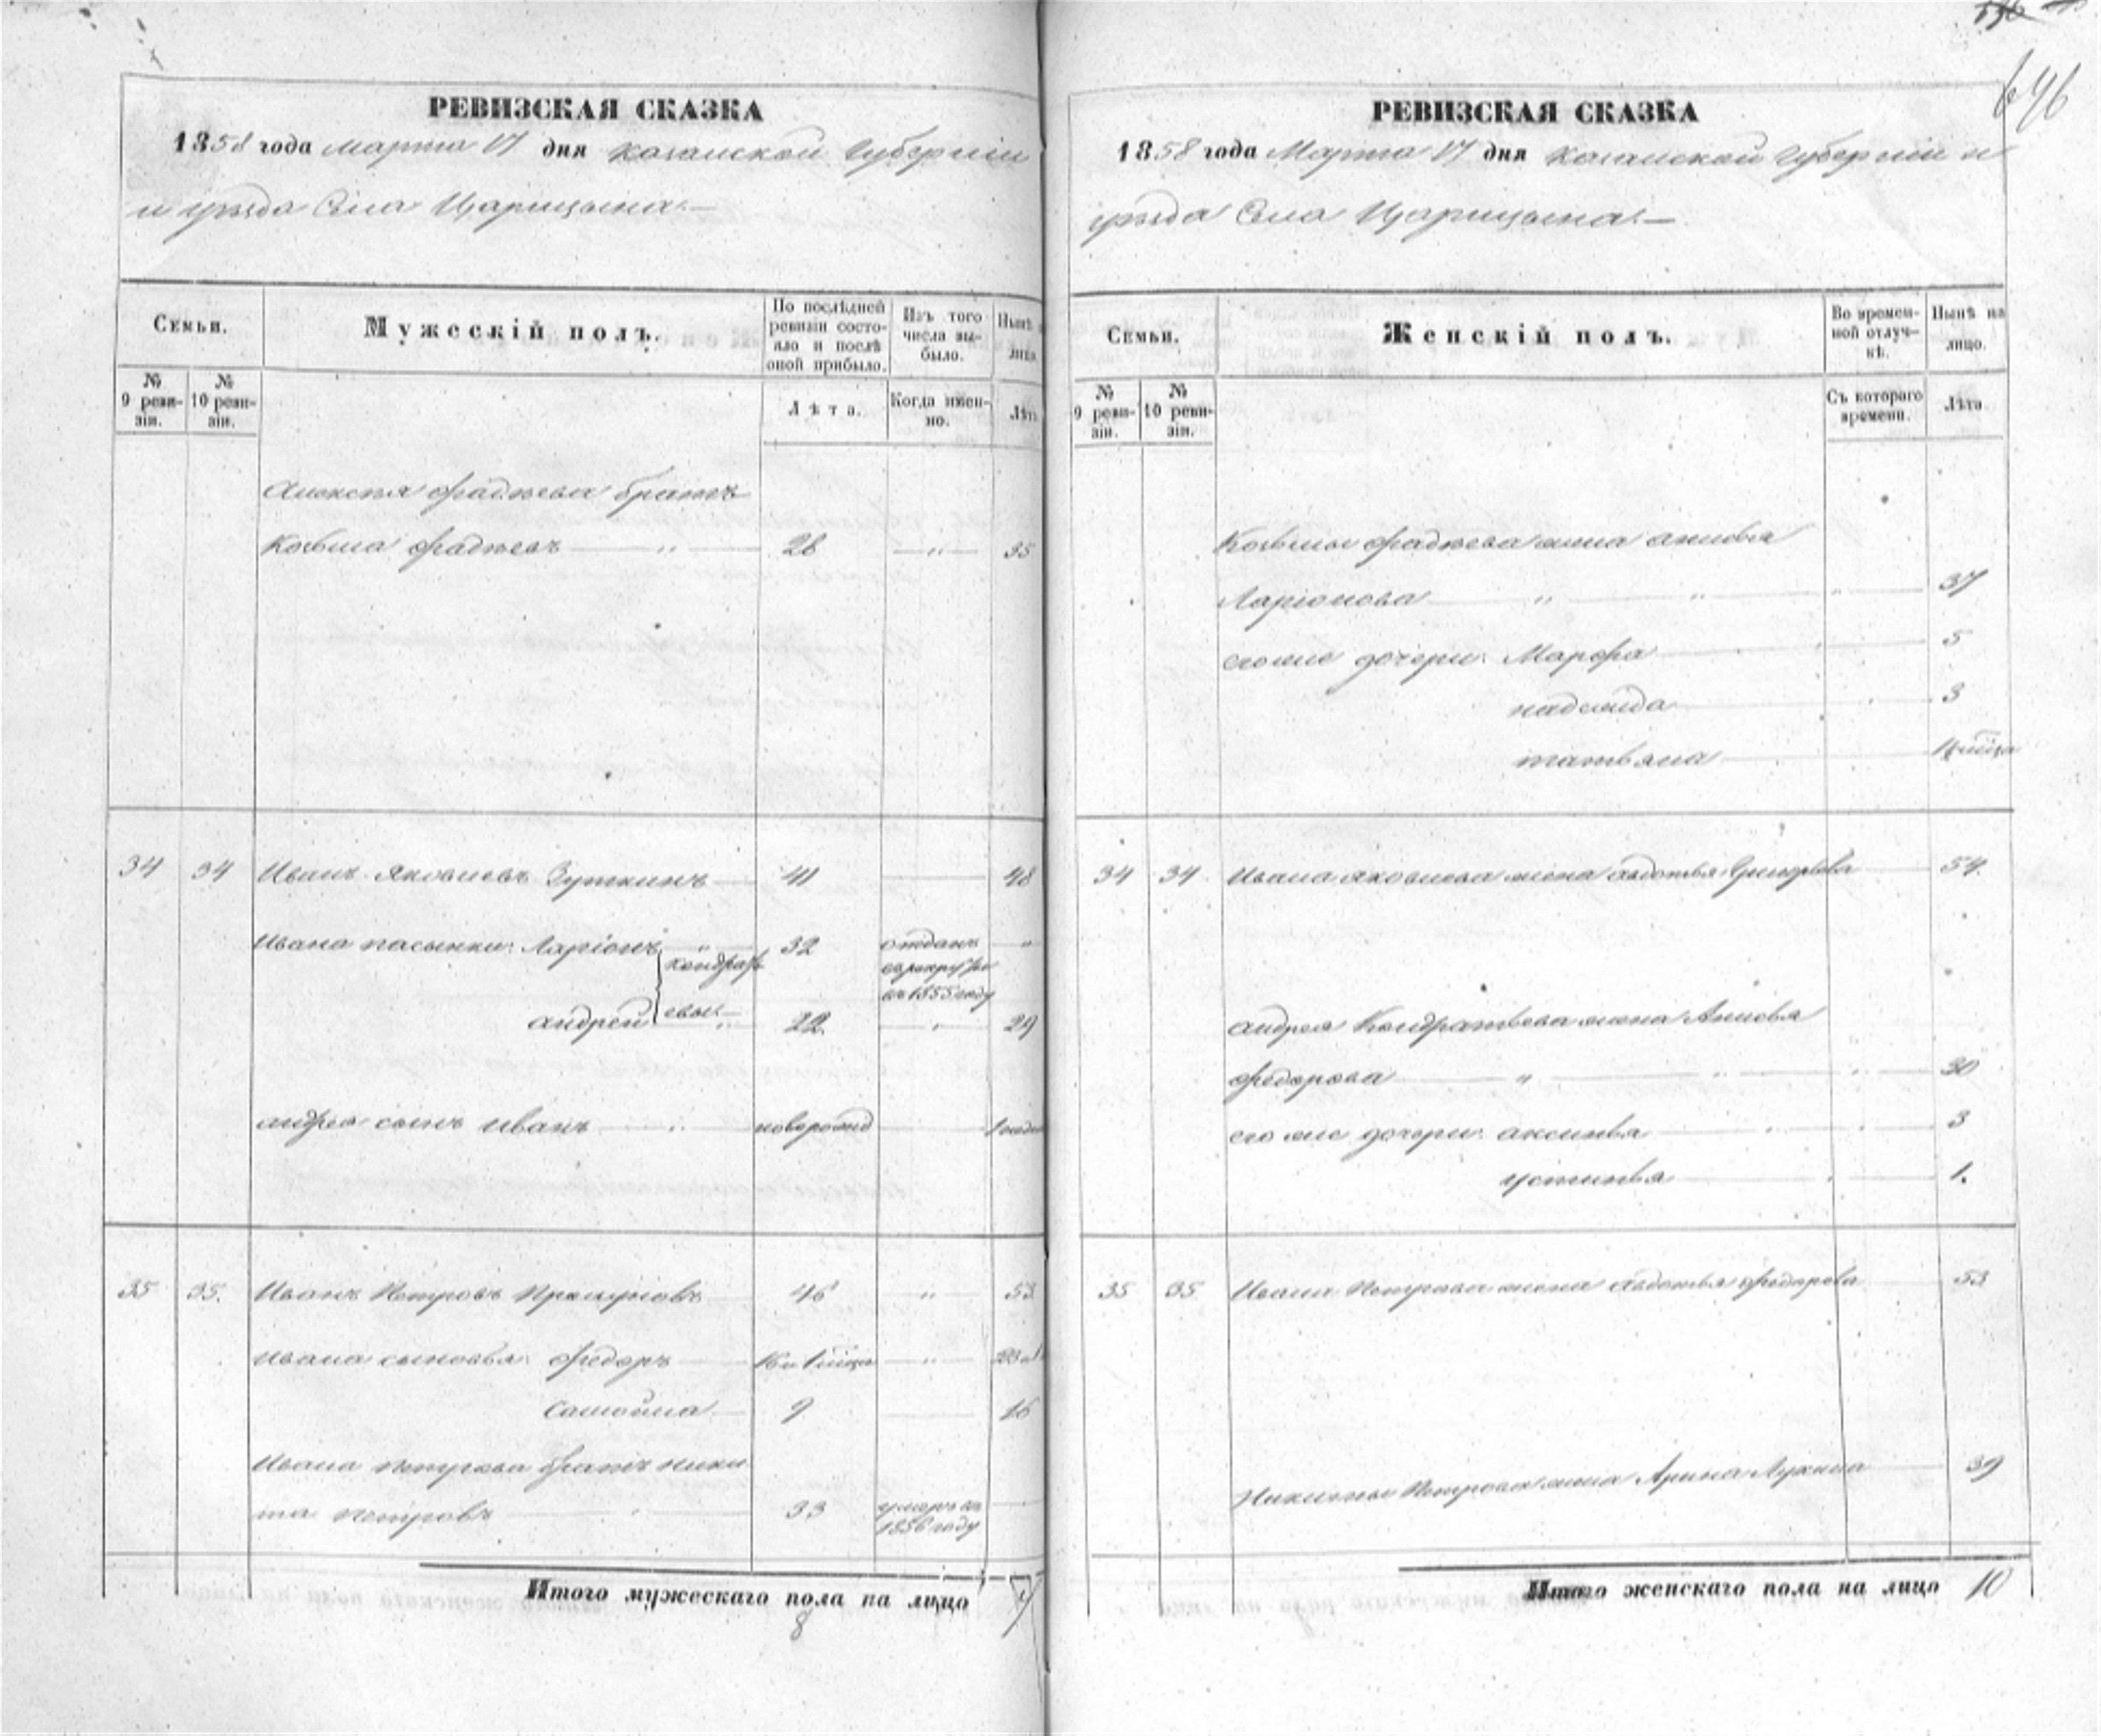 646
РЕВИЗСКАЯ СКАЗКА
1858 года Марта 17 дня Казанской Губерніи
и уѣзда Села Царицына.—
Семьи.
Мужескій полъ.
По послѣдней ревизіи состояло и послѣ оной прибыло.
Изъ того числа выбыло.
Нынѣ на лицо.
№ 9 ревизіи.
№ 10 ревизіи.
Лѣта.
Когда именно.
Лѣта
Алексѣя Фадѣева братъ
Козьма Фадѣевъ — 28 — 35
34 34 Иванъ Яковлевъ Зуткинъ 41 48
Ивана пасынки: Ларіонъ 32 отданъ
Кондрать въ рекруты
въ 1855 году
Андрей евы: 22 29
Андрея сынъ Иванъ новорожд
35 35. Иванъ Петровъ 46 53
Ивана сыновья: Федоръ
Самойла 9 16
Ивана Петрова братъ Ники
та Петровъ 33 умеръ въ
1856 году
Итого мужескаго пола на лицо 7
8
РЕВИЗСКАЯ СКАЗКА
1858 года Марта 17 дня Казанской Губерніи и
уѣзда Села Царицына.—
Семьи.
Женскій полъ.
Во временной отлучкѣ.
Нынѣ на лицо.
№ 9 ревизіи.
№ 10 ревизіи.
Съ котораго времени.
Лѣта
Козьмы Фадѣева жена Анисья
Ларіонова 37
его же дочери: Марфа 5
Надежда 3
Татьяна
34 34 Ивана Яковлева жена Авдотья Григорьева 54.
Андрея Кондратьева жена Анисья
Федорова 30
его же дочери: Аксинья 3
Устинья 1.
35 35 Ивана Петрова жена Авдотья Федорова 53
Никиты Петрова жена Арина Лукина 39
Итого женскаго пола на лицо 10